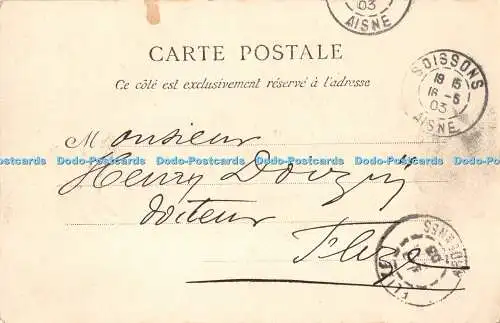 03
AISNE
CARTE POSTALE
Ce côté est exclusivement réservé à l'adresse
SOISSONS
18 15
16 - 5
03
AISNE
Monsieur
Dodo-Postcards Dodo-Postcards Dodo-Postcards Dodo-Postcards Dodo-Postcards Dodo-Postcards
Henry
éditeur
Flize
FLIZE
ARDENNES